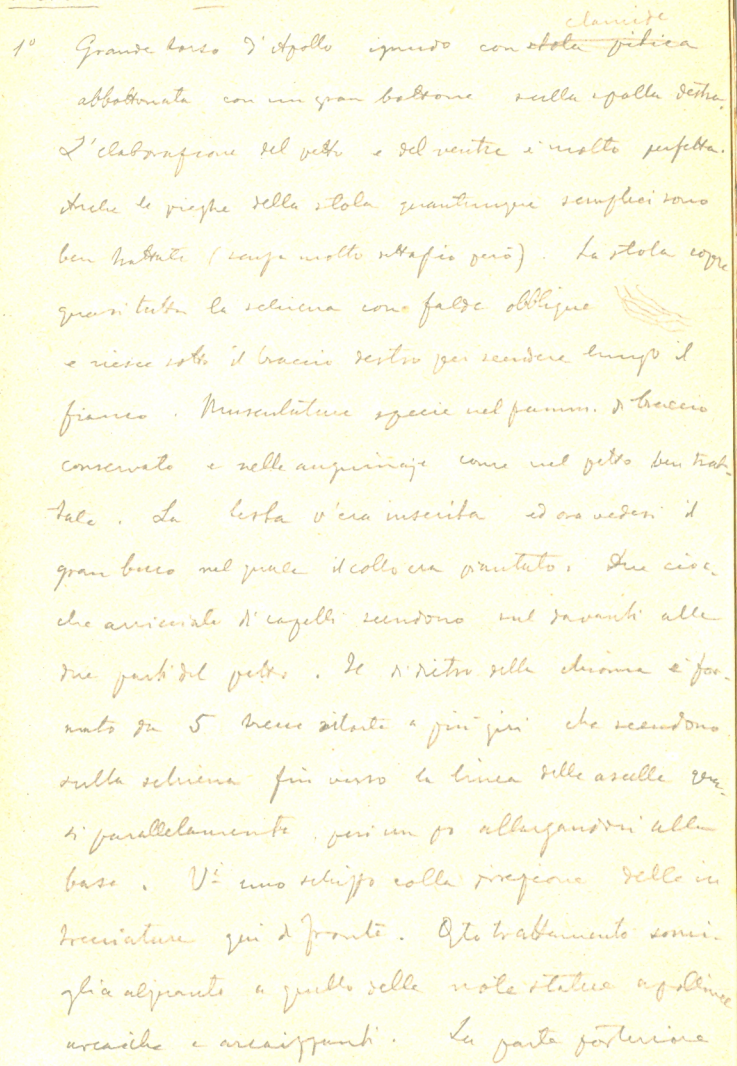 clamide
1º Grande torso d'Apollo ignudo con stola pitica
abbottonata con un gran bottone sulla spalla destra.
L'elaborazione del petto e del ventre è molto perfetta.
Anche le pieghe della stola quantunque semplici sono
ben trattate (senza molto però). La stola copre
quasi tutta la schiena con falde obblique
e riesce sotto il braccio destro per scendere lungo il
fianco. Muscolature specie nel framm. di braccio
conservato e nelle anguinaje come nel petto ben trat-
tate. La testa v'era inserita ed ora vedesi il
gran buco nel quale il collo era piantato. Due cioc-
che arricciate di capelli scendono sul davanti alle
due parti del petto. Il didietro della chioma è for-
mato da 5 trecce ritorte a più giri che scendono
sulla schiena fin verso la linea delle ascelle qua-
si parallelamente, però un po allargandosi alla
base. V'è uno schizzo colla direzione delle in
trecciature qui di fronte. Qto trattamento somi-
glia alquanto a quello delle note statue apollinee
arcaiche e arcaizzanti. La parte posteriore